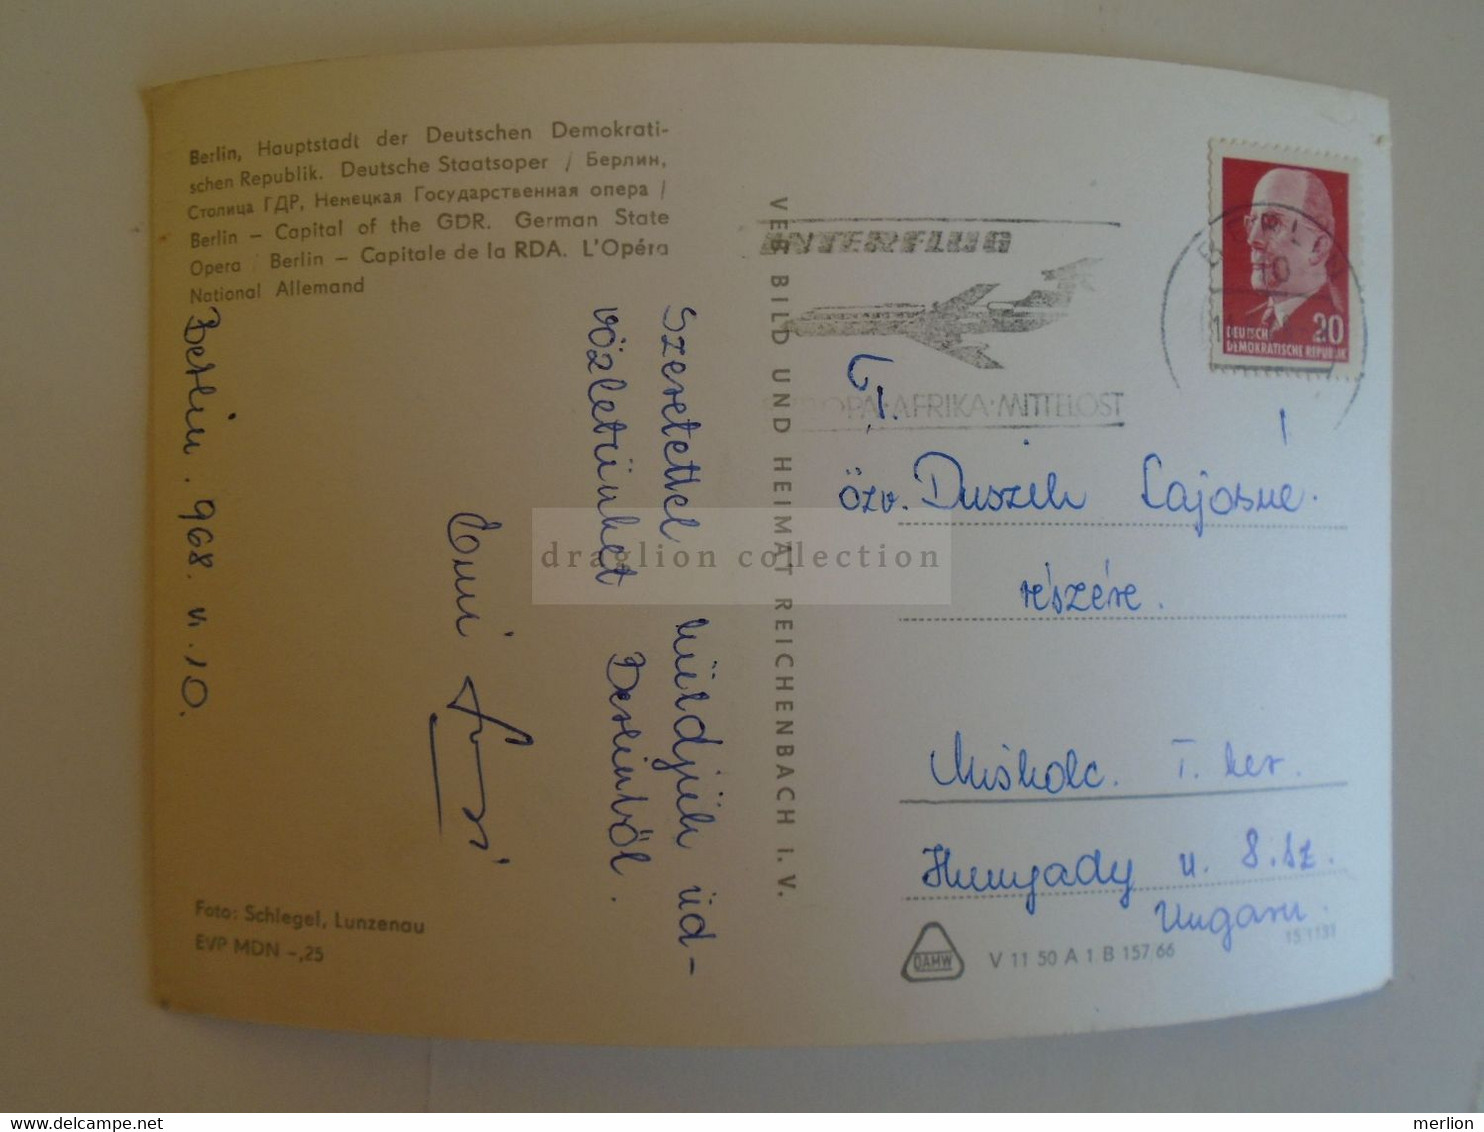 Berlin, Hauptstadt der Deutschen Demokrati-
schen Republik. Deutsche Staatsoper / Берлин,
Столица ГДР, Немецкая Государственная опера /
Berlin – Capital of the GDR. German State
Opera / Berlin – Capitale de la RDA. L'Opéra
National Allemand
Berlin. 968. VI. 10.
Szeretettel küldjük üd-
vözletünket Berlinből.
Foto: Schlegel, Lunzenau
EVP MDN -,25
VEB BILD UND HEIMAT REICHENBACH I. V.
INTERFLUG
OPA·AFRIKA·MITTELOST
BERLIN
10
20
DEUTSCHE
DEMOKRATISCHE REPUBLIK
özv. Duszik Lajosné.
részére.
Miskolc. I. ker.
Hunyady u. 8. sz.
Ungarn.
15/1131
DAMW
V 11 50 A 1 B 157/66
draglion collection
delcampe.net
merlion